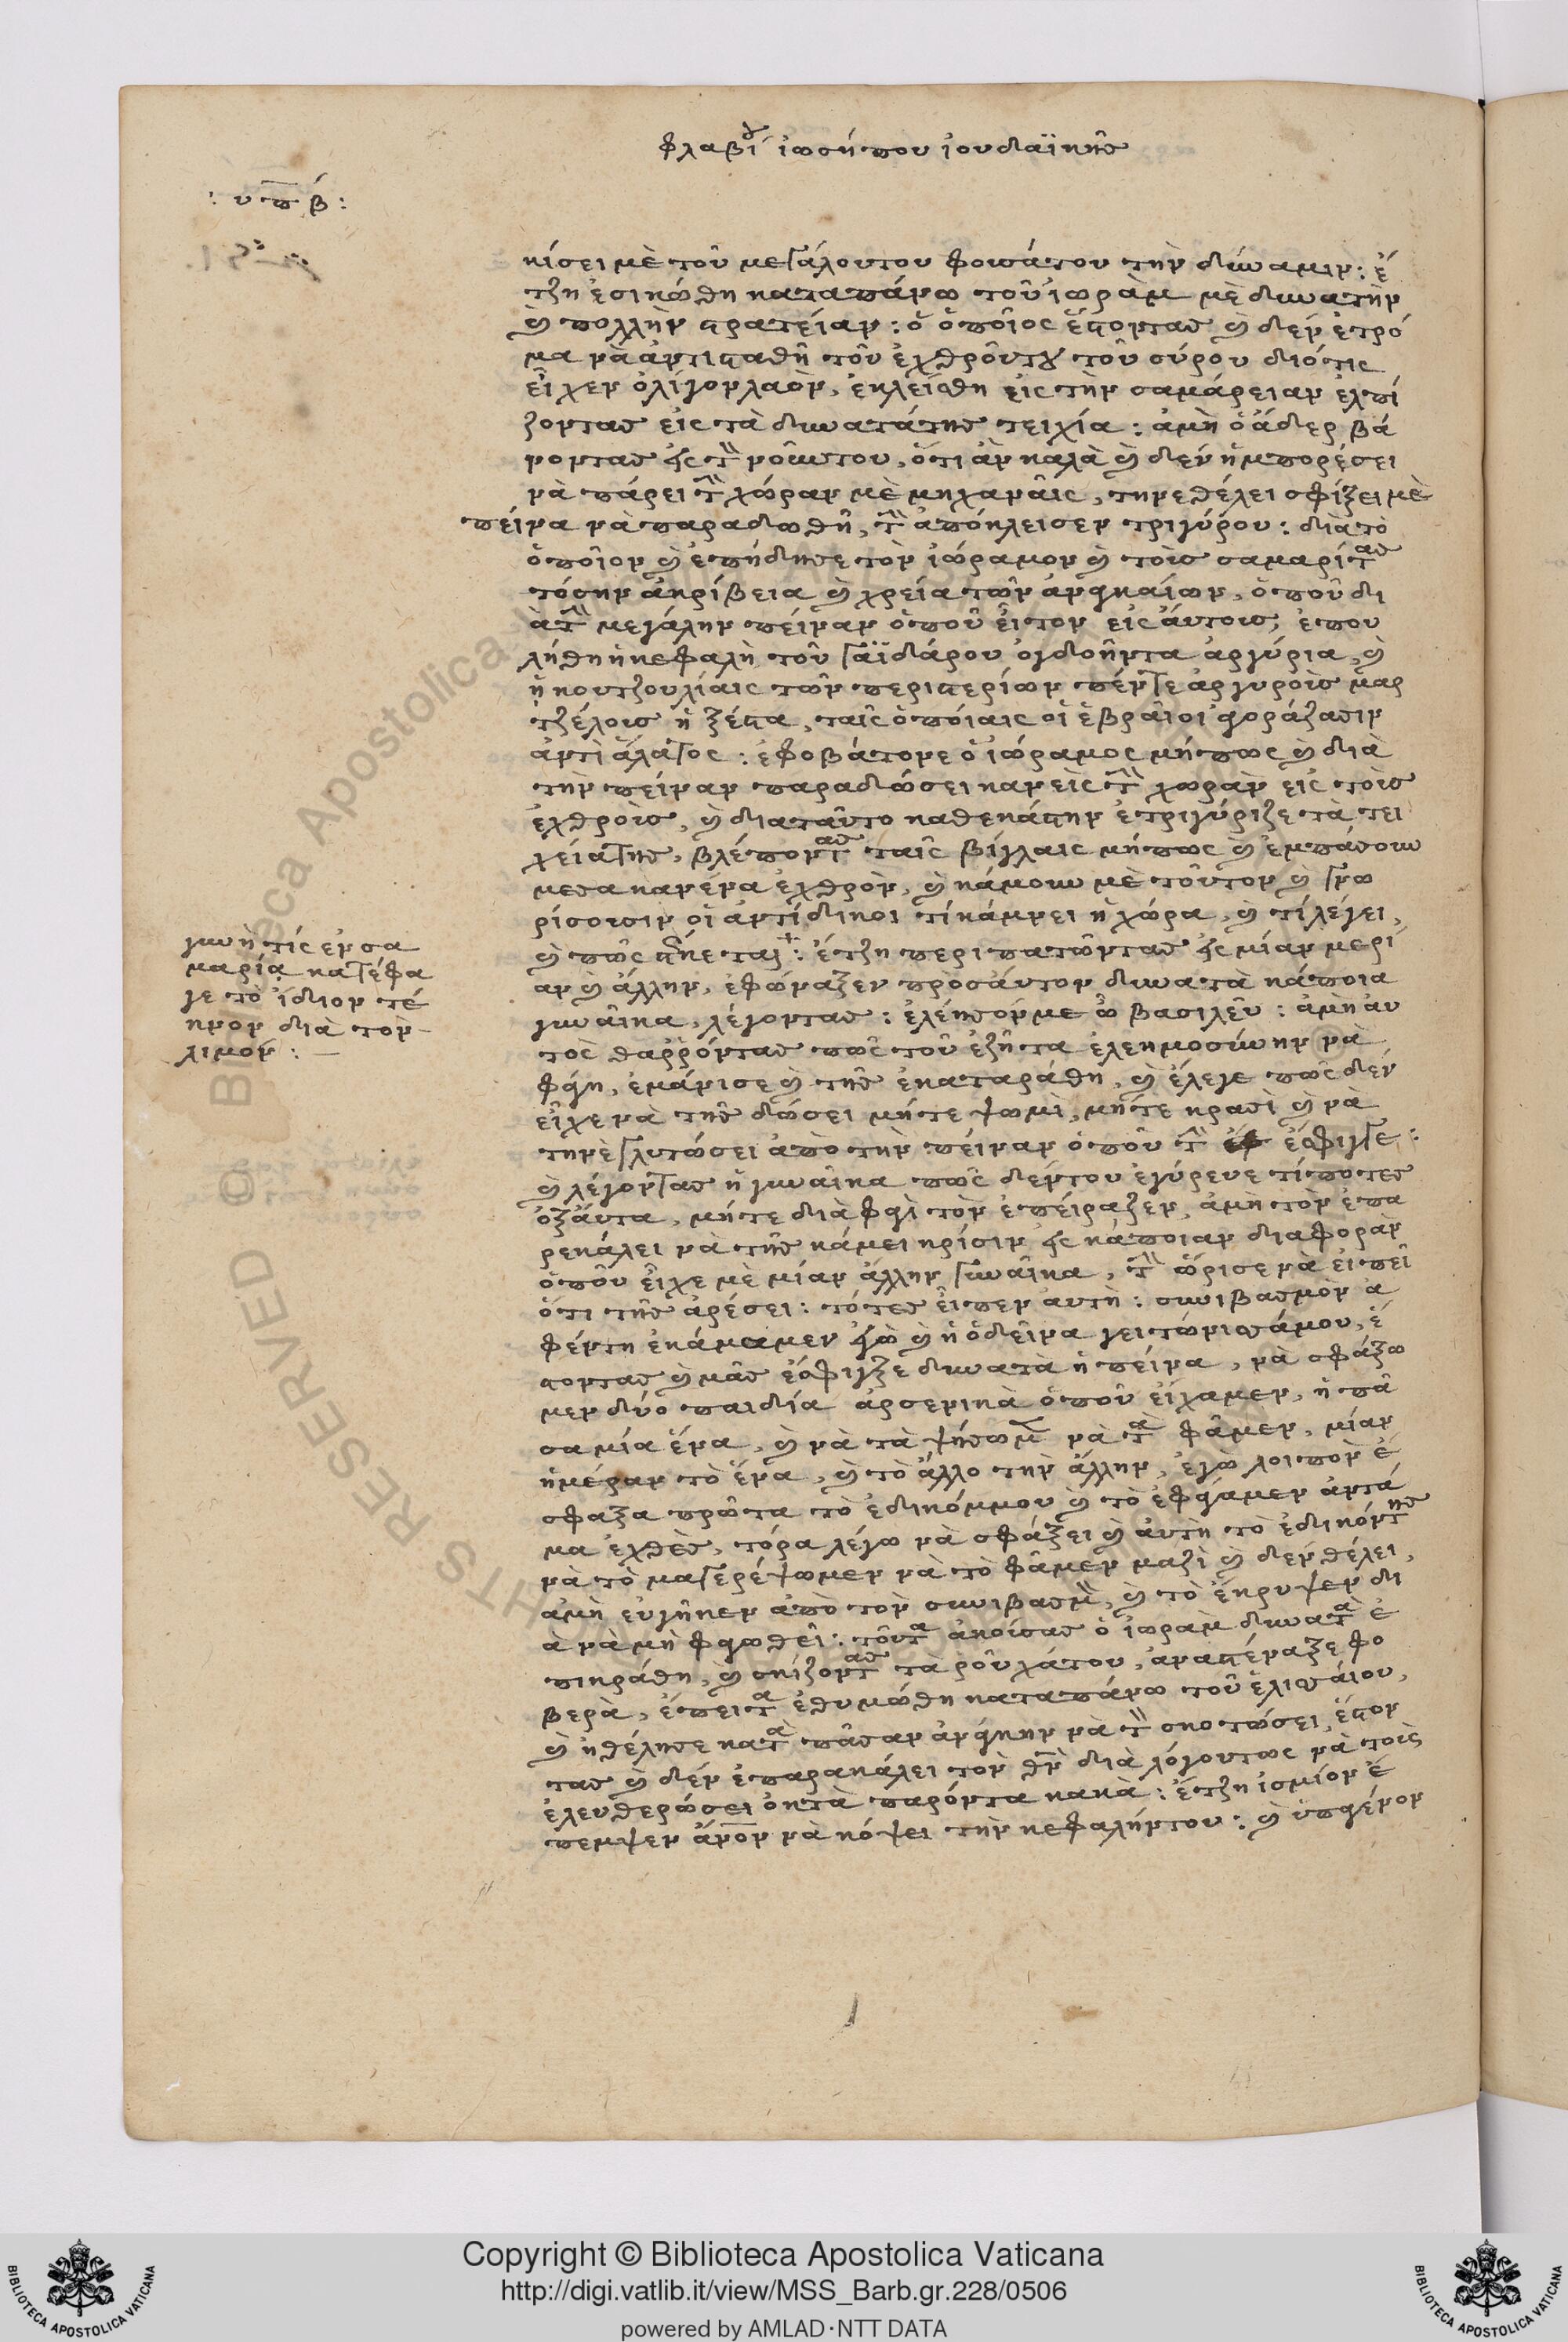 φλαβίου ἰωσήπου ἰουδαϊκῆς
: υπβ :
κίσει μὲ τοῦ μεγάλουτου φουσάτου τὴν δύναμιν : ἔ
τζη ἐσικώθη καταπάνω τοῦ ἰωρὰμ μὲ δυνατὴν
καὶ πολλὴν στρατείαν : ὁ ὁποῖος ἔστοντας καὶ δεν ἐτρό
μα νὰ ἀντισταθῆ τοῦ ἐχθροῦντου τοῦ σύρου διότις
εἶχεν ὀλίγονλαὸν, ἐκλείσθη εἰς τὴν σαμάρειαν ἐλπί
ζοντας εἰς τὰ δυνατάτης τειχία : ἀμὴ ὁ ἄδερ βά
νοντας εἰς τὸν νοῦντου, ὅτι ἀν καλὰ καὶ δεν ἠμπορέσει
νὰ πάρει τὴν χώραν μὲ μηχαναῖς, τηνεθέλει σφίξει μὲ
πείνα νὰ παραδωθῆ, τὴν ἀπόκλεισεν τριγύρου : διὰ τὸ
ὁποῖον καὶ ἐπήδησε τὸν ἰώραμον καὶ τοὺς σαμαρίτας
τόσην ἀκρίβεια καὶ χρεία τῶν ἀναγκαίων, ὁποῦ δι
ὰ τὴν μεγάλην πείναν ὁποῦ εἶτον εἰς ἄυτους, ἐπου
λήθη ἡ κεφαλὴ τοῦ γαϊδάρου ὀγδοῆντα ἀργύρια, καὶ
ἡ κουτζουλίαις τῶν περιστερίων πέντε ἀργυροὺς μαρ
τζέλους ἡ ξέστα, ταῖς ὁποίαις οἱ ἑβραῖοι ἀγοράζασιν
ἀντὶ ἅλατος : ἐφοβάτονε ὁ ἰώραμος μήπως καὶ διὰ
τὴν πείναν παραδώσει κανεὶς τὴν χωρὰν εἰς τοὺς
ἐχθροὺς, καὶ διαταῦτο καθεκάστην ἐτριγύριζε τὰ τει
χείατης, βλέποντας ταῖς βίγλαις μήπως καὶ ἐμπάσουν
μεσα κανένα ἐχθρὸν, καὶ κάμουν μὲ τοῦτον καὶ γνω
ρίσουσιν οἱ ἀντίδικοι τί κάμνει ἡ χώρα, καὶ τί λέγει,
καὶ πῶς στέκεται : ἔτζη περιπατῶντας εἰς μίαν μερί
αν καὶ ἄλλην, ἐφώναξεν πρὸς ἄυτον δυνατὰ κάποια
γυναῖκα, λέγοντας : ἐλέησόνμε ὦ βασιλεῦ : ἀμὴ ἀυ
τὸς θαῤῥόντας πῶς τοῦ ἐζῆτα ἐλεημοσύνην νὰ
φάγη, ἐμάνισε καὶ τῆς ἐκαταράθη, καὶ ἔλεγε πῶς δὲν
εἶχε νὰ τῆς δώσει μήτε ψωμὶ, μήτε κρασὶ καὶ νὰ
τηνὲ γλυτώσει ἀπὸ τὴν πείναν ὁποῦ τὴν ἐσφιγγε :
καὶ λέγοντας ἡ γυναῖκα πῶς δεντου ἐγύρευε τίποτες
ὀξἄυτα, μήτε διὰ φαγὶ τὸν ἐπείραζεν, ἀμὴ τὸν ἐπα
ρεκάλει νὰ τῆς κάμει κρίσιν εἰς κάποιαν διαφορὰν
ὁποῦ εἶχε μὲ μίαν ἄλλην γυναῖκα, τὴν ὥρισε νὰ εἰπεῖ
ὅτι τῆς ἀρέσει : τότες εἶπεν ἀυτὴ : συνιβασμὸν ἀ
φέντη ἐκάμαμεν ἐγὼ καὶ ἡ ὁδεῖνα γειτώνισάμου, ἔ
στοντας καὶ μᾶς ἔσφιγξε δυνατὰ ἡ πείνα, νὰ σφάξω
μεν δύο παιδία ἀρσενικὰ ὁποῦ εἴχαμεν, ἡ πᾶ
σα μία ἕνα, καὶ νὰ τὰ ψήσωμεν νὰ τὰ φᾶμεν, μίαν
ἡμέραν τὸ ἕνα, καὶ τὸ ἄλλο τὴν ἄλλην, ἐγὼ λοιπὸν ἔ
σφαξα πρῶτα τὸ ἐδικόμμου καὶ τὸ ἐφάγαμεν ἀντά
μα ἐχθὲς, τόρα λέγω νὰ σφάξει καὶ ἀυτὴ τὸ ἐδικόντης
νὰ τὸ μαγερέψωμεν νὰ τὸ φᾶμεν μαζὶ καὶ δεν θέλει,
ἀμὴ ευγῆκεν ἀπὸ τὸν συνιβασμὸν, καὶ τὸ ἔκρυψεν δι
ὰ νὰ μὴ φαγωθεῖ : τοῦτα ἀκούσας ὁ ἰωρὰμ δυνατὰ ἐ
πικράθη, καὶ σκίζοντας τὰ ροῦχάτου, ἀναστέναξε φο
βερὰ, ἔπειτα ἐθυμώθη καταπάνω τοῦ ἑλισάιου,
καὶ ἠθέλησε κατὰ πᾶσαν ἀνάγκην νὰ τὸν σκοτώσει, ἔστον
τας καὶ δεν ἐπαρακάλει τὸν θεὸν διὰ λόγουτως νὰ τοὺς
ἐλευθερώσει ὀκτὰ παρόντα κακὰ : ἔτζη ἰσμίον ἔ
πεμψεν ἄνον νὰ κόψει τὴν κεφαλήντου : καὶ ὑπαγένον
γυνὴ τίς εν σα
μαρία κατέφα
γε τὸ ἴδιον τέ
κνον διὰ τὸν
λιμόν : —
Copyright © Biblioteca Apostolica Vaticana
http://digi.vatlib.it/view/MSS_Barb.gr.228/0506
powered by AMLAD·NTT DATA
BIBLIOTECA APOSTOLICA VATICANA
BIBLIOTECA APOSTOLICA VATICANA